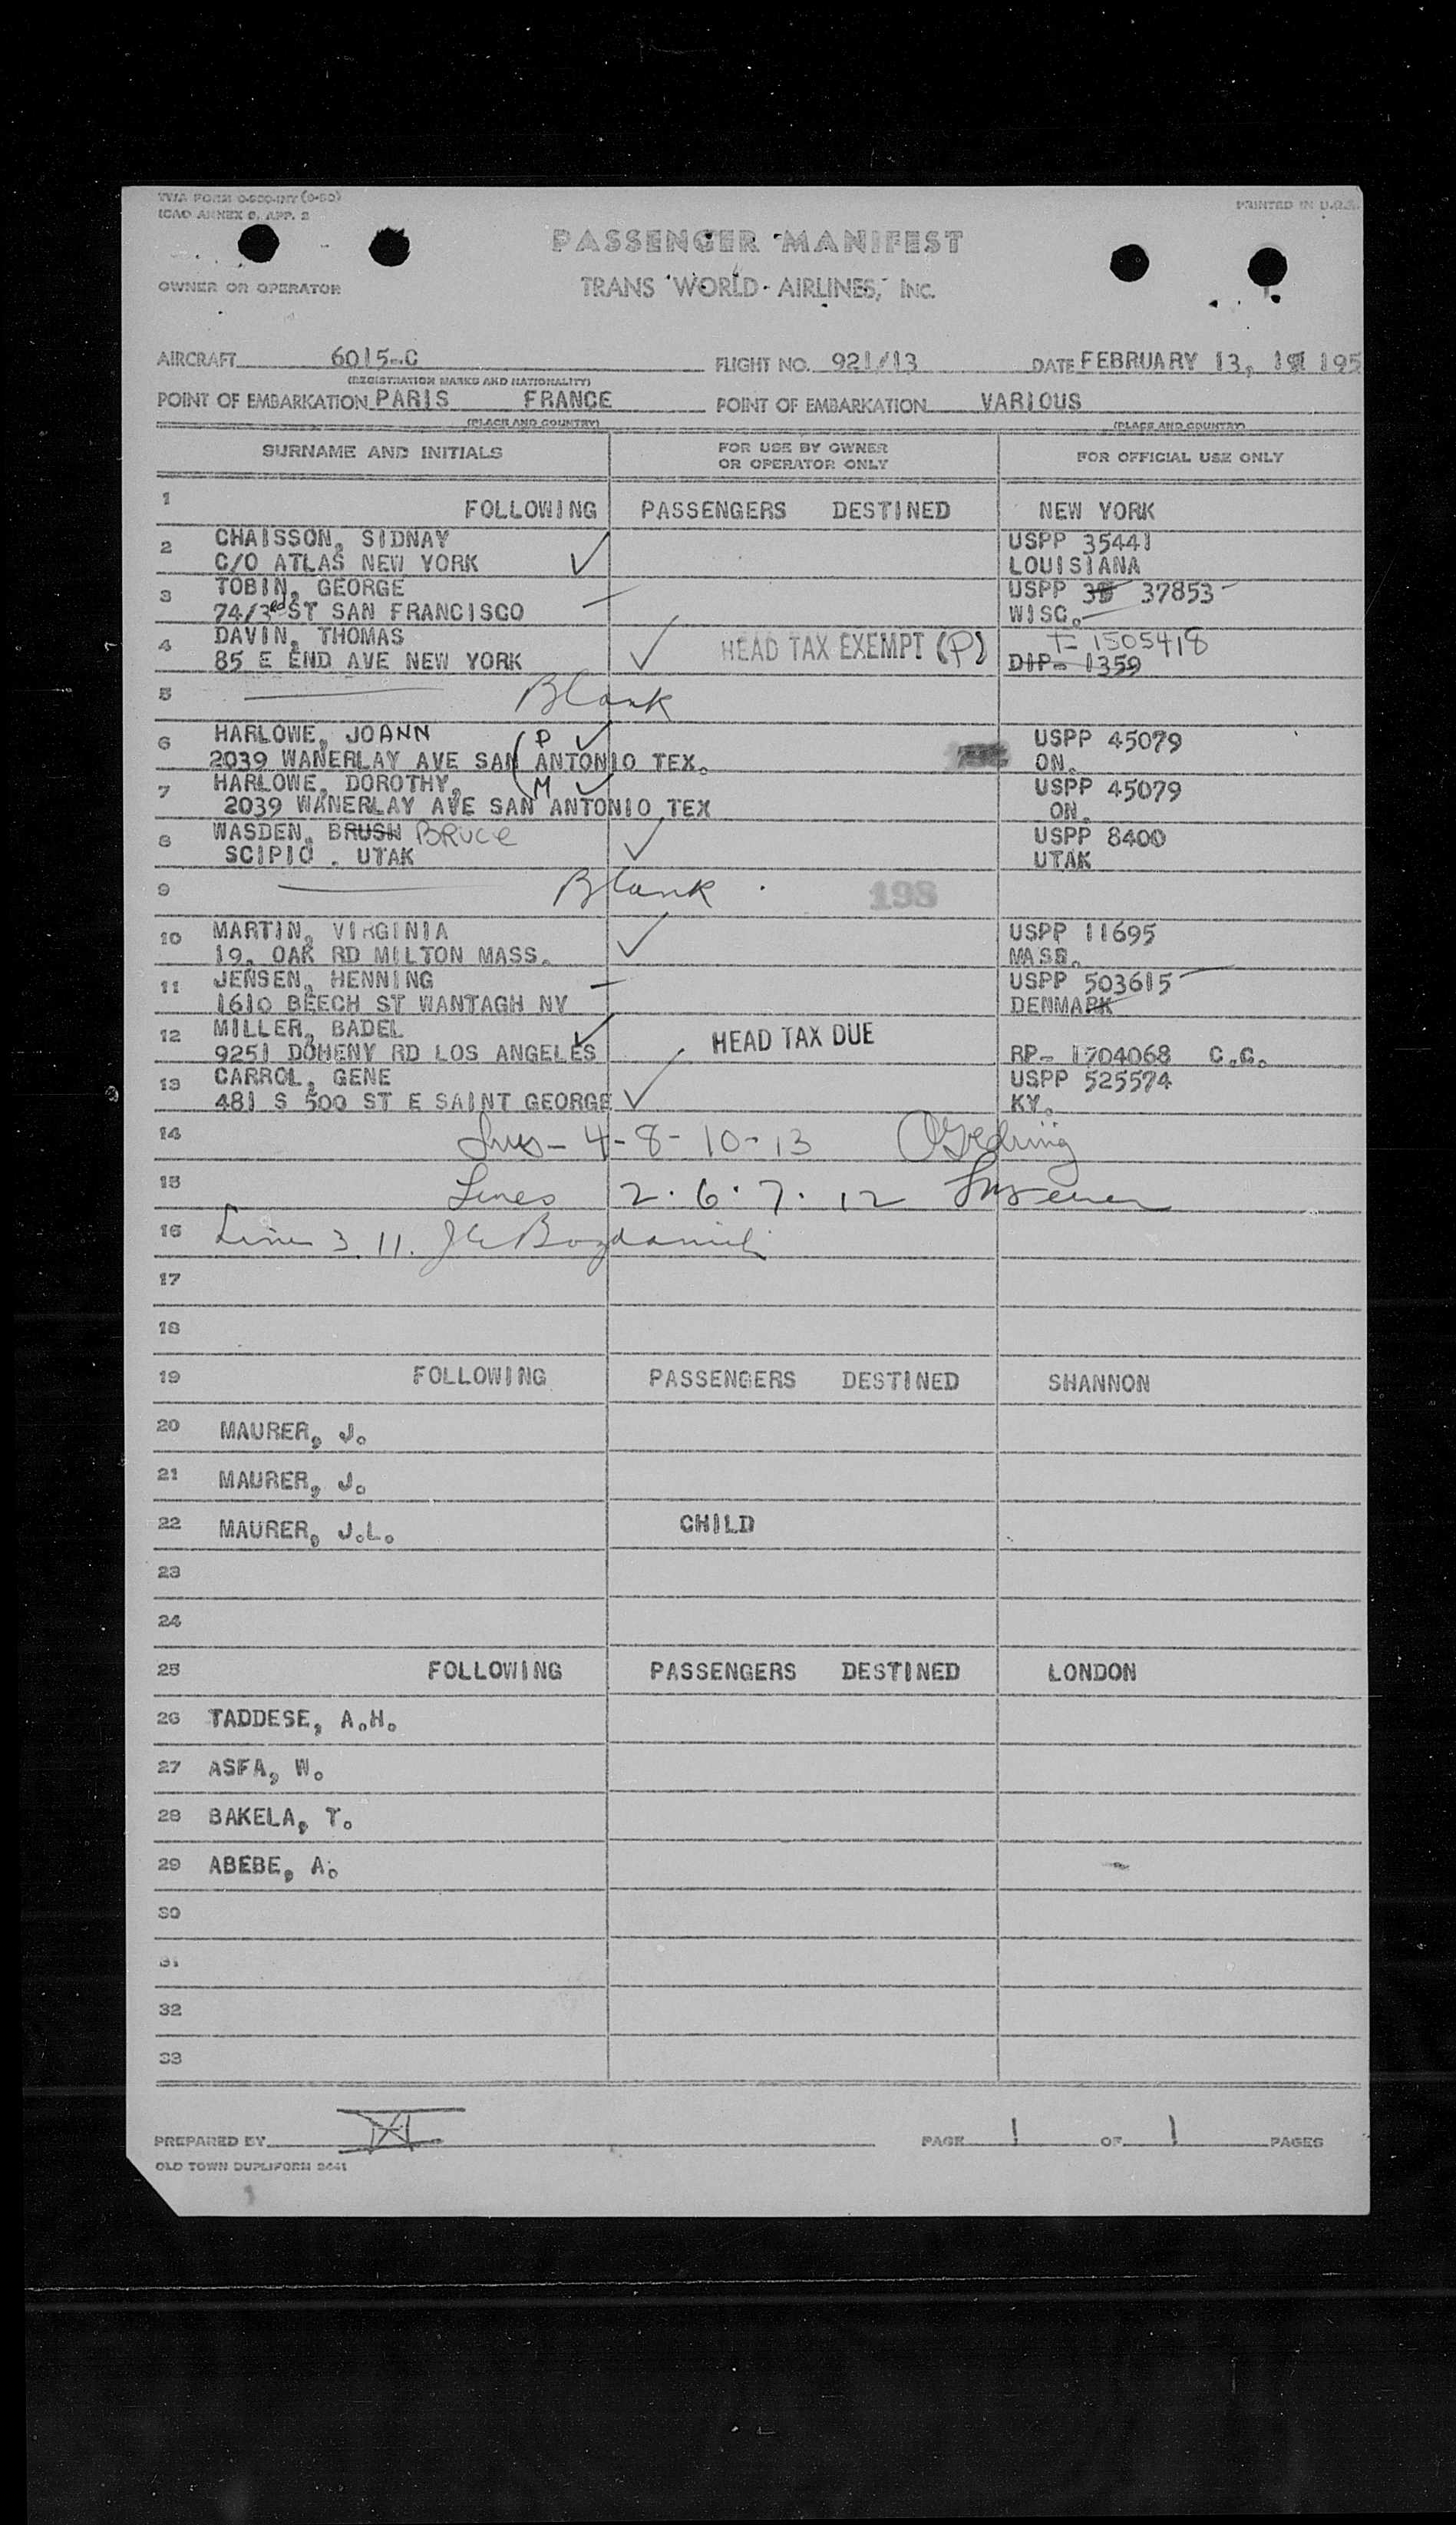 TWA FORM 0-500-INT (9-50)
ICAO ANNEX 9, APP. 2
PRINTED IN U.S.A.
PASSENGER MANIFEST
OWNER OR OPERATOR
TRANS WORLD AIRLINES, INC.
AIRCRAFT 6015-C FLIGHT NO. 921/13 DATE FEBRUARY 13, 195
(REGISTRATION MARKS AND NATIONALITY)
POINT OF EMBARKATION PARIS FRANCE POINT OF EMBARKATION VARIOUS
(PLACE AND COUNTRY) (PLACE AND COUNTRY)
SURNAME AND INITIALS FOR USE BY OWNER OR OPERATOR ONLY FOR OFFICIAL USE ONLY
1 FOLLOWING PASSENGERS DESTINED NEW YORK
2 CHAISSON, SIDNAY USPP 35441
C/O ATLAS NEW YORK LOUISIANA
3 TOBIN, GEORGE USPP 37853
74/3rd ST SAN FRANCISCO WISC.
4 DAVIN, THOMAS HEAD TAX EXEMPT (P) T- 1505418
85 E END AVE NEW YORK DIP- 1359
5 Blank
6 HARLOWE, JOANN (P USPP 45079
2039 WANERLAY AVE SAN ANTONIO TEX. ON.
7 HARLOWE, DOROTHY, (M USPP 45079
2039 WANERLAY AVE SAN ANTONIO TEX ON.
8 WASDEN, BRUSH BRUCE USPP 8400
SCIPIO . UTAK UTAK
9 Blank . 198
10 MARTIN, VIRGINIA USPP 11695
19. OAK RD MILTON MASS. MASS.
11 JENSEN, HENNING USPP 503615
1610 BEECH ST WANTAGH NV DENMARK
12 MILLER, BADEL HEAD TAX DUE
9251 DOHENY RD LOS ANGELES RP- 1704068 C.C.
13 CARROL, GENE USPP 525574
481 S 500 ST E SAINT GEORGE KY.
14 4-8-10-13
15 Lines 2. 6. 7. 12
16 Lines 3. 11.
17
18
19 FOLLOWING PASSENGERS DESTINED SHANNON
20 MAURER, J.
21 MAURER, J.
22 MAURER, J.L. CHILD
23
24
25 FOLLOWING PASSENGERS DESTINED LONDON
26 TADDESE, A.H.
27 ASFA, W.
28 BAKELA, T.
29 ABEBE, A.
30
31
32
33
PREPARED BY PAGE 1 OF 1 PAGES
OLD TOWN DUPLIFORM 2441